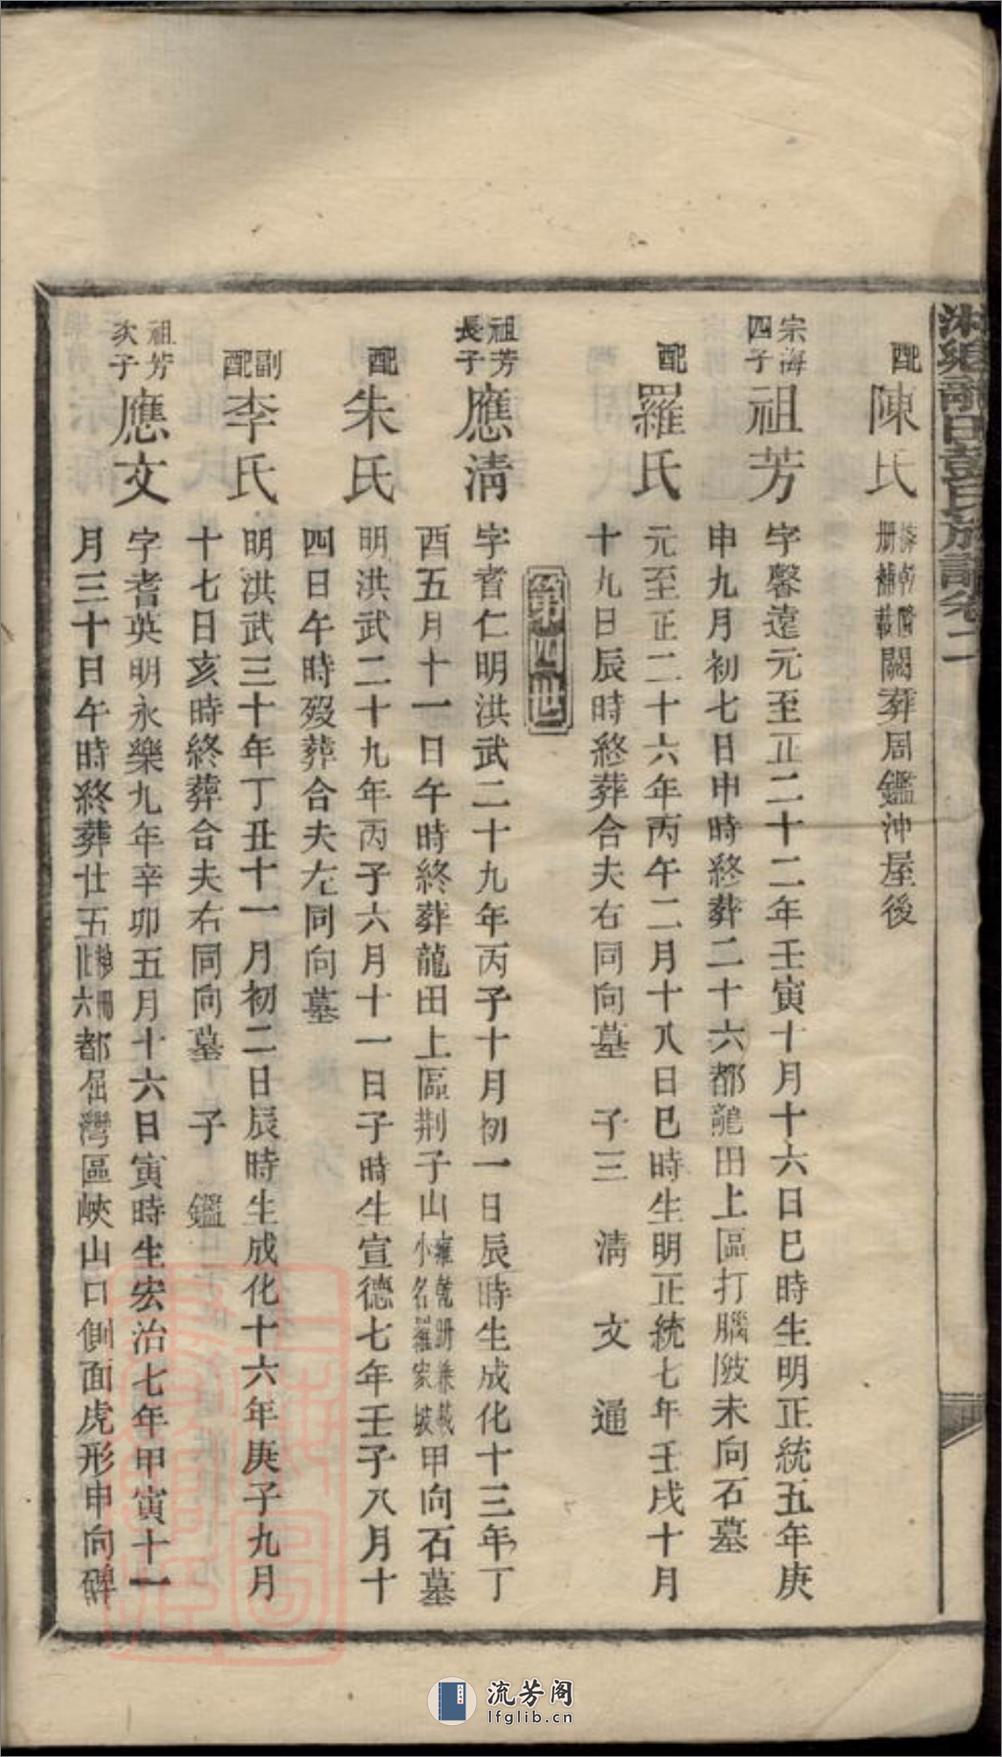 湘鄉龍田彭氏族譜卷二
配陳氏
乾隆冊補載闕葬周鑑沖屋後
宗海四子祖芳
字馨遠元至正二十二年壬寅十月十六日巳時生明正統五年庚
申九月初七日申時終葬二十六都龍田上區打腦陂未向石墓
配羅氏
元至正二十六年丙午二月十八日巳時生明正統七年壬戌十月
十九日辰時終葬合夫右同向墓 子三 清 文 通
第四世
祖芳長子應清
字耆仁明洪武二十九年丙子十月初一日辰時生成化十三年丁
酉五月十一日午時終葬龍田上區荆子山雍乾冊兼載小名羅家坡甲向石墓
配朱氏
明洪武二十九年丙子六月十一日子時生宣德七年壬子八月十
四日午時歿葬合夫左同向墓
副配李氏
明洪武三十年丁丑十一月初二日辰時生成化十六年庚子九月
十七日亥時終葬合夫右同向墓 子 鑑
祖芳次子應文
字耆英明永樂九年辛卯五月十六日寅時生宏治七年甲寅十一
月三十日午時終葬廿五冊廿六都屈灣區峽山口側面虎形申向碑
流芳阁
lfglib.cn